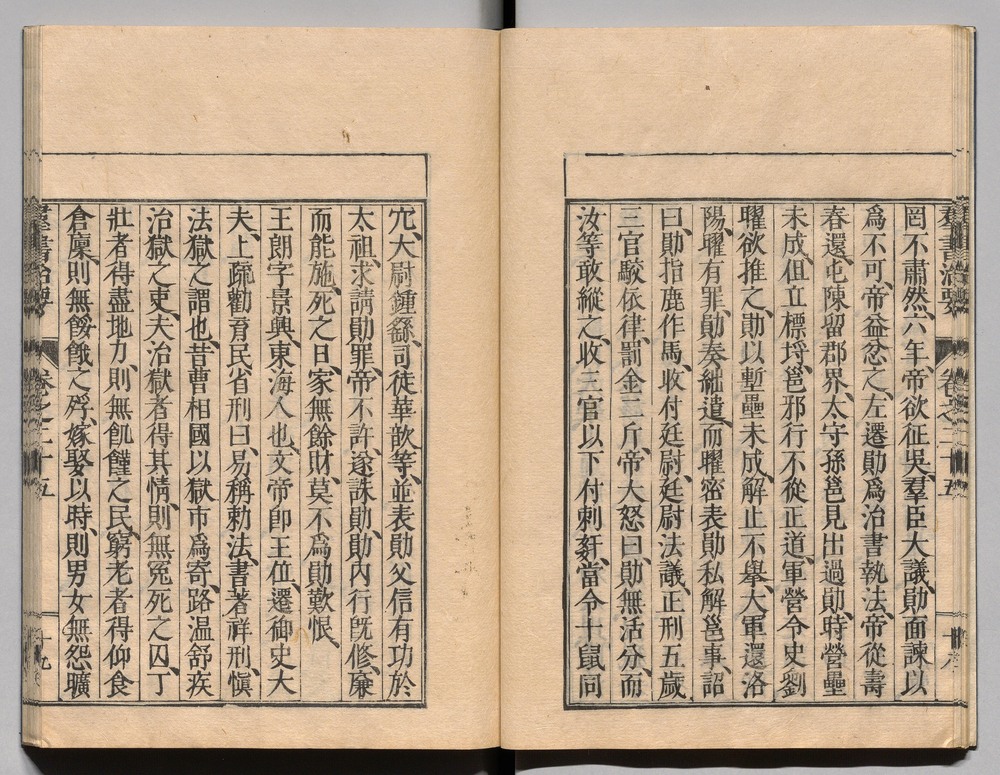 罔不肅然、六年、帝欲征吳、羣臣大議、勛面諫以
爲不可、帝益忿之、左遷勛爲治書執法、帝從壽
春還、屯陳留郡界、太守孫邕見出過勛、時營壘
未成、但立標埒、邕邪行不從正道、軍營令史劉
曜欲推之、勛以塹壘未成、解止不舉、大軍還洛
陽、曜有罪、勛奏絀遣、而曜密表勛私解邕事、詔
曰、勛指鹿作馬、收付廷尉、廷尉法議、正刑五歲
三官駮依律、罰金二斤、帝大怒曰、勛無活分、而
汝等敢縱之、收三官以下付刺姦、當令十鼠同
羣書治要 卷之二十五
穴、大尉鍾繇、司徒華歆等、並表勛父信有功於
太祖、求請勛罪、帝不許、遂誅勛、勛內行旣修、廉
而能施、死之日、家無餘財、莫不爲勛歎恨、
王朗字景興、東海人也、文帝卽王位、遷御史大
夫、上疏勸育民省刑曰、易稱勅法、書著祥刑、愼
法獄之謂也、昔曹相國以獄市爲寄、路温舒疾
治獄之吏、夫治獄者得其情、則無冤死之囚、丁
壯者得盡地力、則無飢饉之民、窮老者得仰食
倉廩、則無餒餓之殍、嫁娶以時、則男女無怨曠
羣書治要 卷之二十五 十九